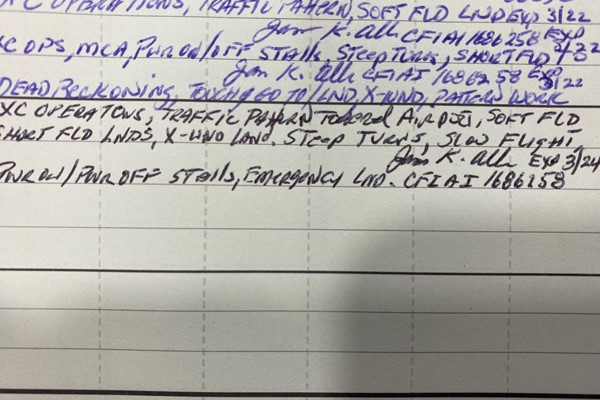 XC OPERATIONS, TRAFFIC PATTERN, SOFT FLD LND EXP 3/22
CFIAI 1686258
XC OPS, MCA, PWR ON/OFF STALLS, STEEP TURNS, SHORT FLD EXP 3/22
CFIAI 1686258 EXP 3/22
DEAD RECKONING, TOUCH & GO TO/LND, X-WND, PATTERN WORK
XC OPERATONS, TRAFFIC PATTERN TOWERED AIRPORT, SOFT FLD
SHORT FLD LNDS, X-WND LAND. STEEP TURNS, SLOW FLIGHT,
K. EXP 3/24
PWR ON/PWR OFF STALLS, EMERGENCY LND. CFIAI 1686258